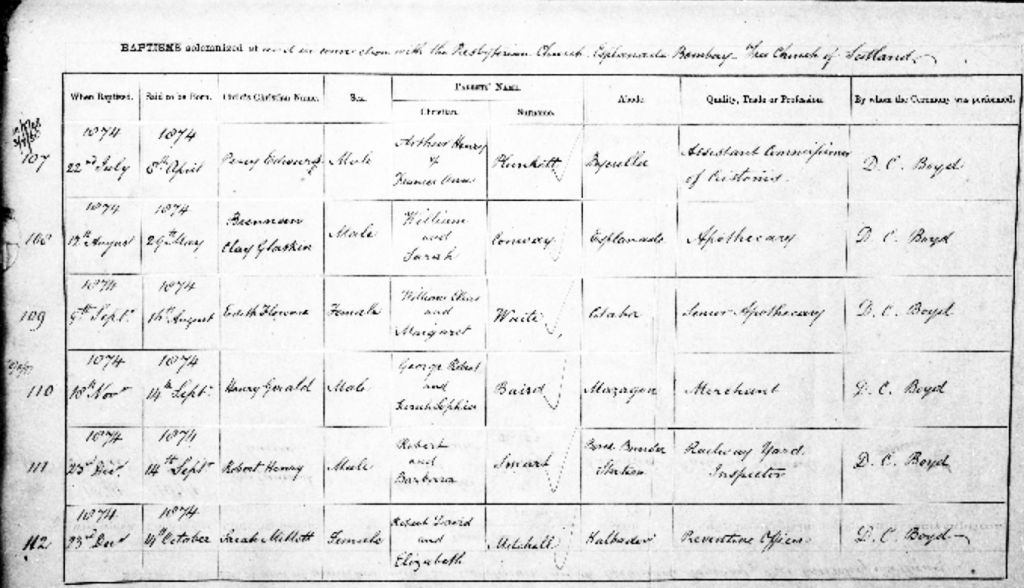 BAPTISMS solemnized at and in connection with the Presbyterian Church Esplanade Bombay - Free Church of Scotland
When Baptized. Said to be Born. Child's Christian Name. Sex. Parents' Name. Abode. Quality, Trade or Profession. By whom the Ceremony was performed.
Christian. Surname.
107 1874 22nd July 1874 8th April Percy Edward Male Arthur Henry & Frances Anne Plunkett Byculla Assistant Commissioner of Customs. D. C. Boyd
108 1874 August 1874 29th May Brennan Clay Glasken Male William and Sarah Conway Esplanade Apothecary D. C. Boyd
109 1874 9th Sept. 1874 16th August Edith Florence Female William and Margaret Waite Colaba Senior Apothecary D. C. Boyd
110 1874 18th Novr 1874 14th Sept. Henry Gerald Male George Robert and Sarah Sophia Baird Mazagon Merchant D. C. Boyd
111 1874 23rd Decr 1874 14th Sept Robert Henry Male Robert and Barbara Smeart Bunder Station Railway Yard Inspector D. C. Boyd
112 1874 23rd Decr 1874 October Sarah Female Robert David and Elizabeth Mitchell Kalbadevi Preventive Officer D. C. Boyd